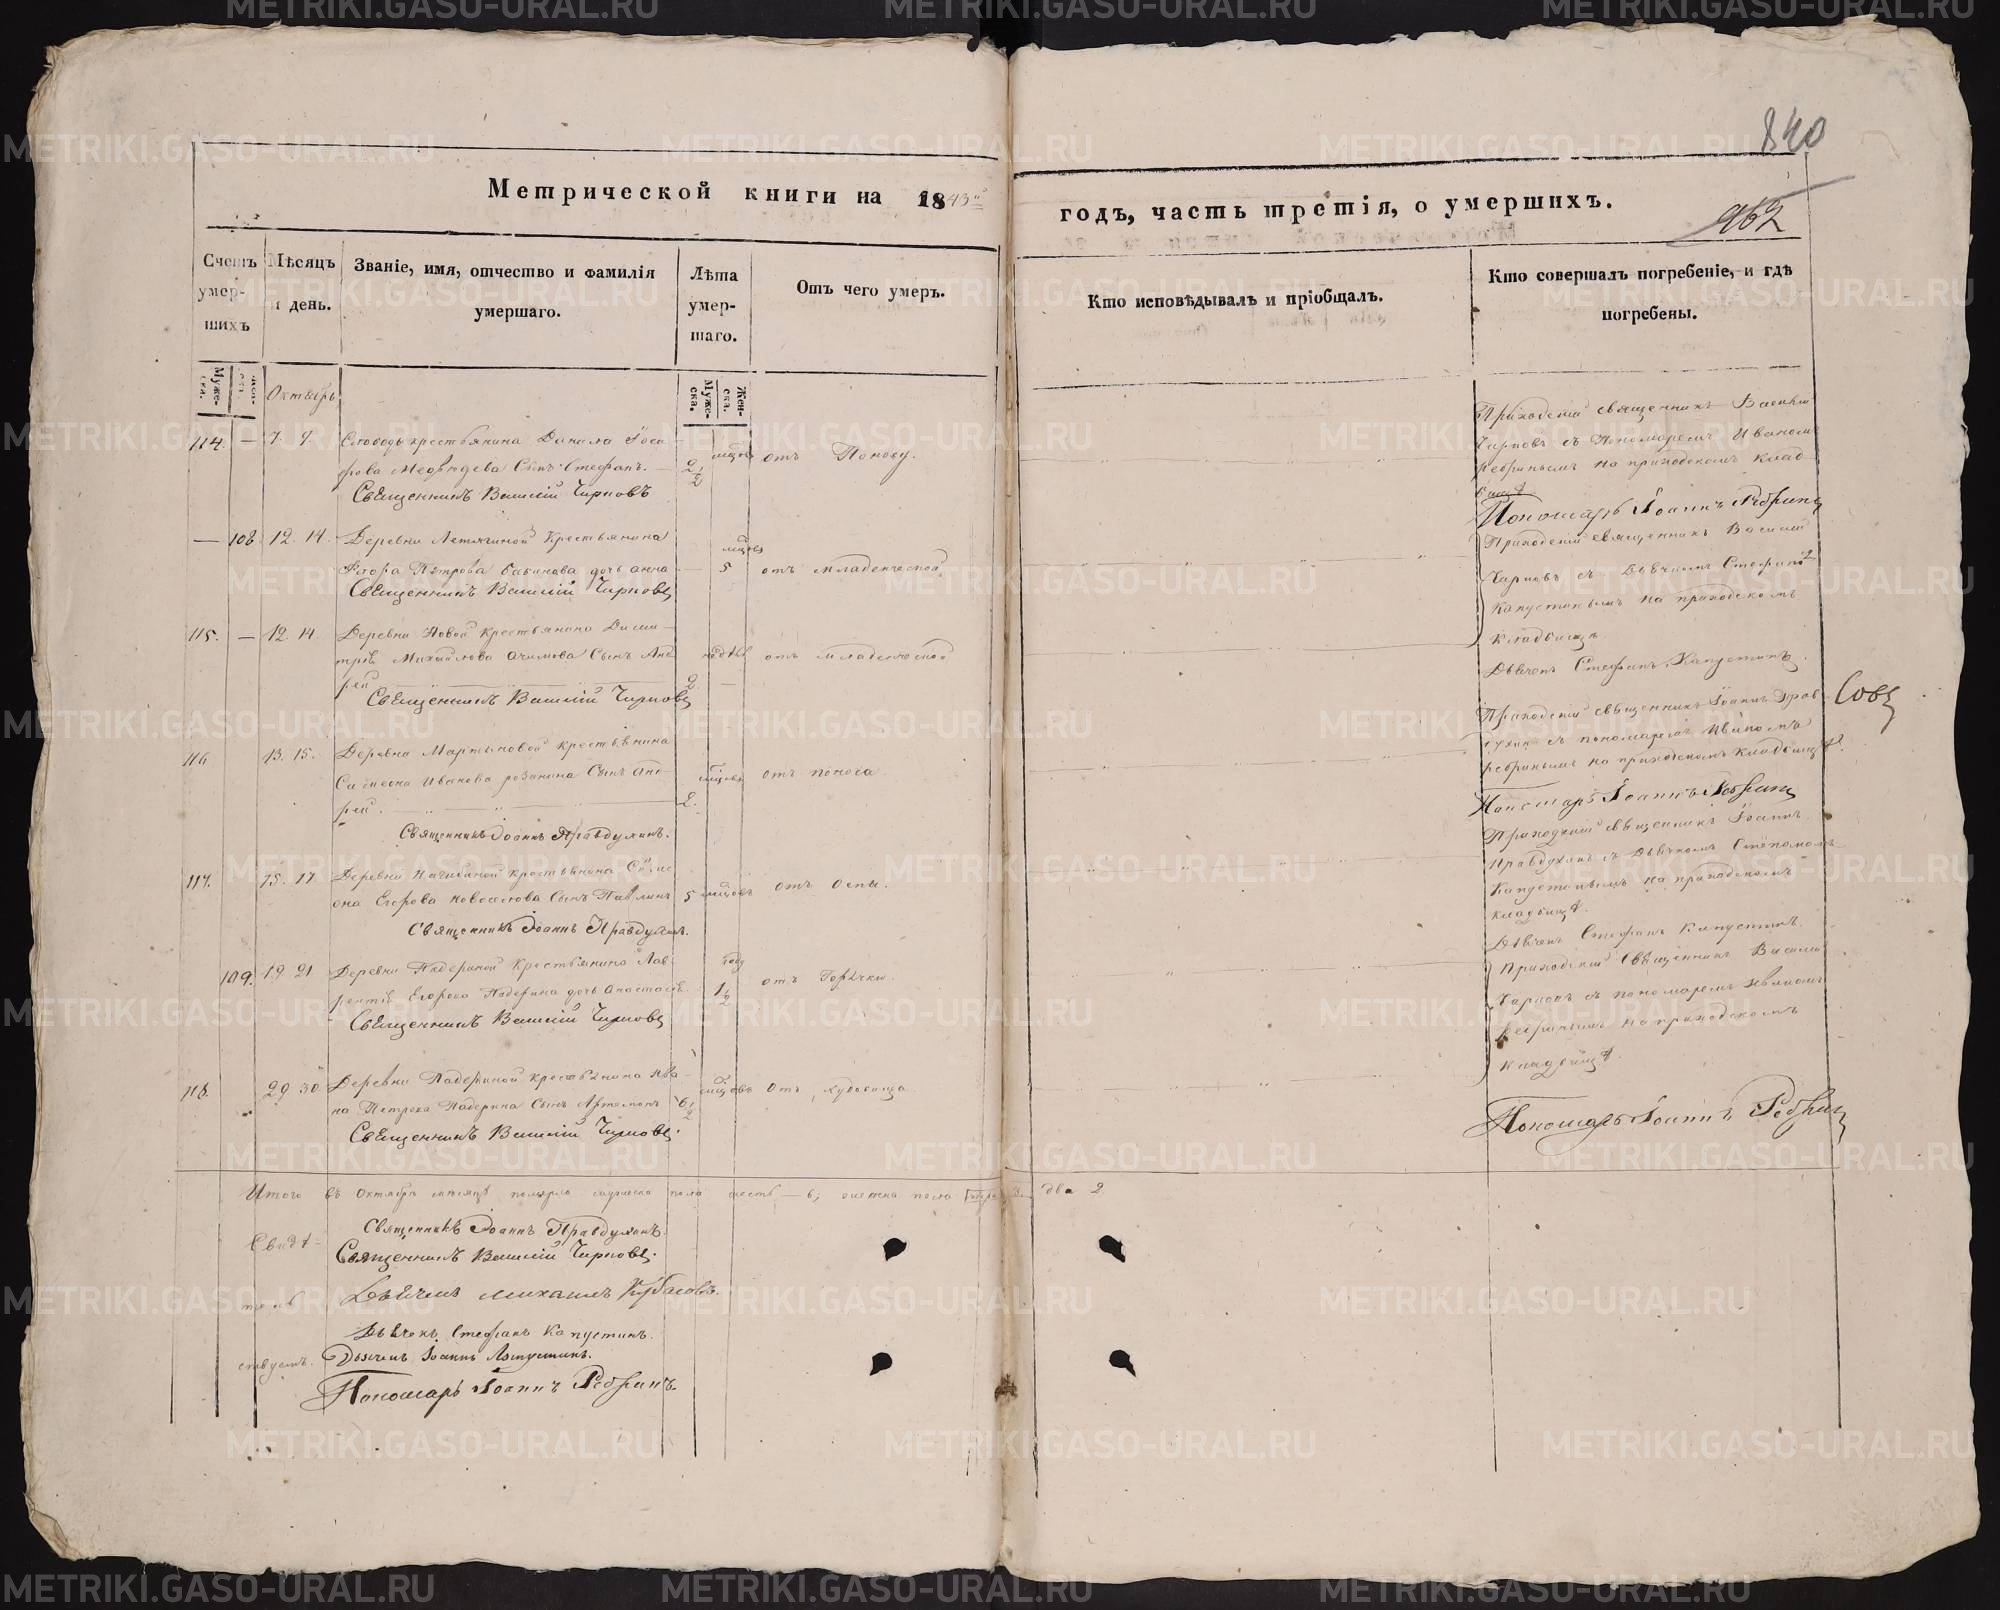 840
Метрической книги на 1843й
годъ, часть третія, о умершихъ.
962
Счетъ умер-шихъ
Мѣсяцъ и день.
Званіе, имя, отчество и фамилія умершаго.
Лѣта умер-шаго.
Отъ чего умеръ.
Кто исповѣдывалъ и пріобщалъ.
Кто совершалъ погребеніе, и гдѣ погребены.
Муже-ска.
Жен-ска.
Муже-ска.
Жен-ска.
Октябрь
114. — 7. 9. Слободы крестьянина Данила
Сынъ Стефанъ. — 2 1/2 мѣсцовъ отъ Поносу.
Священникъ Василій Чирковъ
Приходскій священникъ Василій
Чирковъ съ Пономаремъ Иваномъ
Ребринымъ на приходскомъ клад-
бищѣ
Пономарь Іоаннъ Ребринъ
— 108. 12. 14. Деревни крестьянина
Петрова Бабинова дочь Анна — 5 мѣсцовъ отъ младенческой
Священникъ Василій Чирковъ
Приходскій священникъ Василій
Чирковъ съ Дьячкомъ Стефаномъ
Капустинымъ на приходскомъ
кладбищѣ.
115. — 12. 14. Деревни Новой крестьянина Дими-
трія Михайлова Сынъ Анд-
рей 2 недѣль отъ младенческой
Священникъ Василій Чирковъ
Дьячекъ Стефанъ Капустинъ.
116 13. 15. Деревни Мартыновой крестьянина
Симеона Иванова Сынъ Анд-
рей. 2. мѣсцовъ отъ поноса.
Священникъ Іоаннъ Правдухинъ.
Приходскій священникъ Іоаннъ Прав-
духинъ съ пономаремъ Иваномъ
Ребринымъ на приходскомъ кладбищѣ.
Пономарь Іоаннъ Ребринъ
117. 15. 17. Деревни крестьянина Симе-
она Егорова Сынъ Павлинъ 5 мѣсцовъ отъ Оспы.
Священникъ Іоаннъ Правдухинъ.
Приходскій священникъ Іоаннъ
Правдухинъ съ Дьячкомъ Стефаномъ
Капустинымъ на приходскомъ
кладбищѣ.
Дьячекъ Стефанъ Капустинъ.
109. 19. 21. Деревни Падериной крестьянина Лав-
рентія Егорова Падерина дочь Анастасія. 1 1/2 году отъ Горячки.
Священникъ Василій Чирковъ
Приходскій Священникъ Василій
Чирковъ съ пономаремъ Иваномъ
Ребринымъ на приходскомъ
кладбищѣ.
118. 29 30 Деревни Падериной крестьянина Ива-
на Петрова Падерина Сынъ Артемонъ 6 1/2 мѣсцовъ Отъ
Священникъ Василій Чирковъ.
Пономарь Іоаннъ Ребринъ
Итого въ Октябрѣ мѣсяцѣ померло мужеска пола шесть — 6; женска пола два 2.
Свидѣ-
тель
ствуемъ.
Священникъ Іоаннъ Правдухинъ.
Священникъ Василій Чирковъ.
Дьячекъ Михаилъ Кубасовъ.
Дьячекъ Стефанъ Капустинъ.
Пономарь Іоаннъ Ребринъ.
METRIKI.GASO-URAL.RU